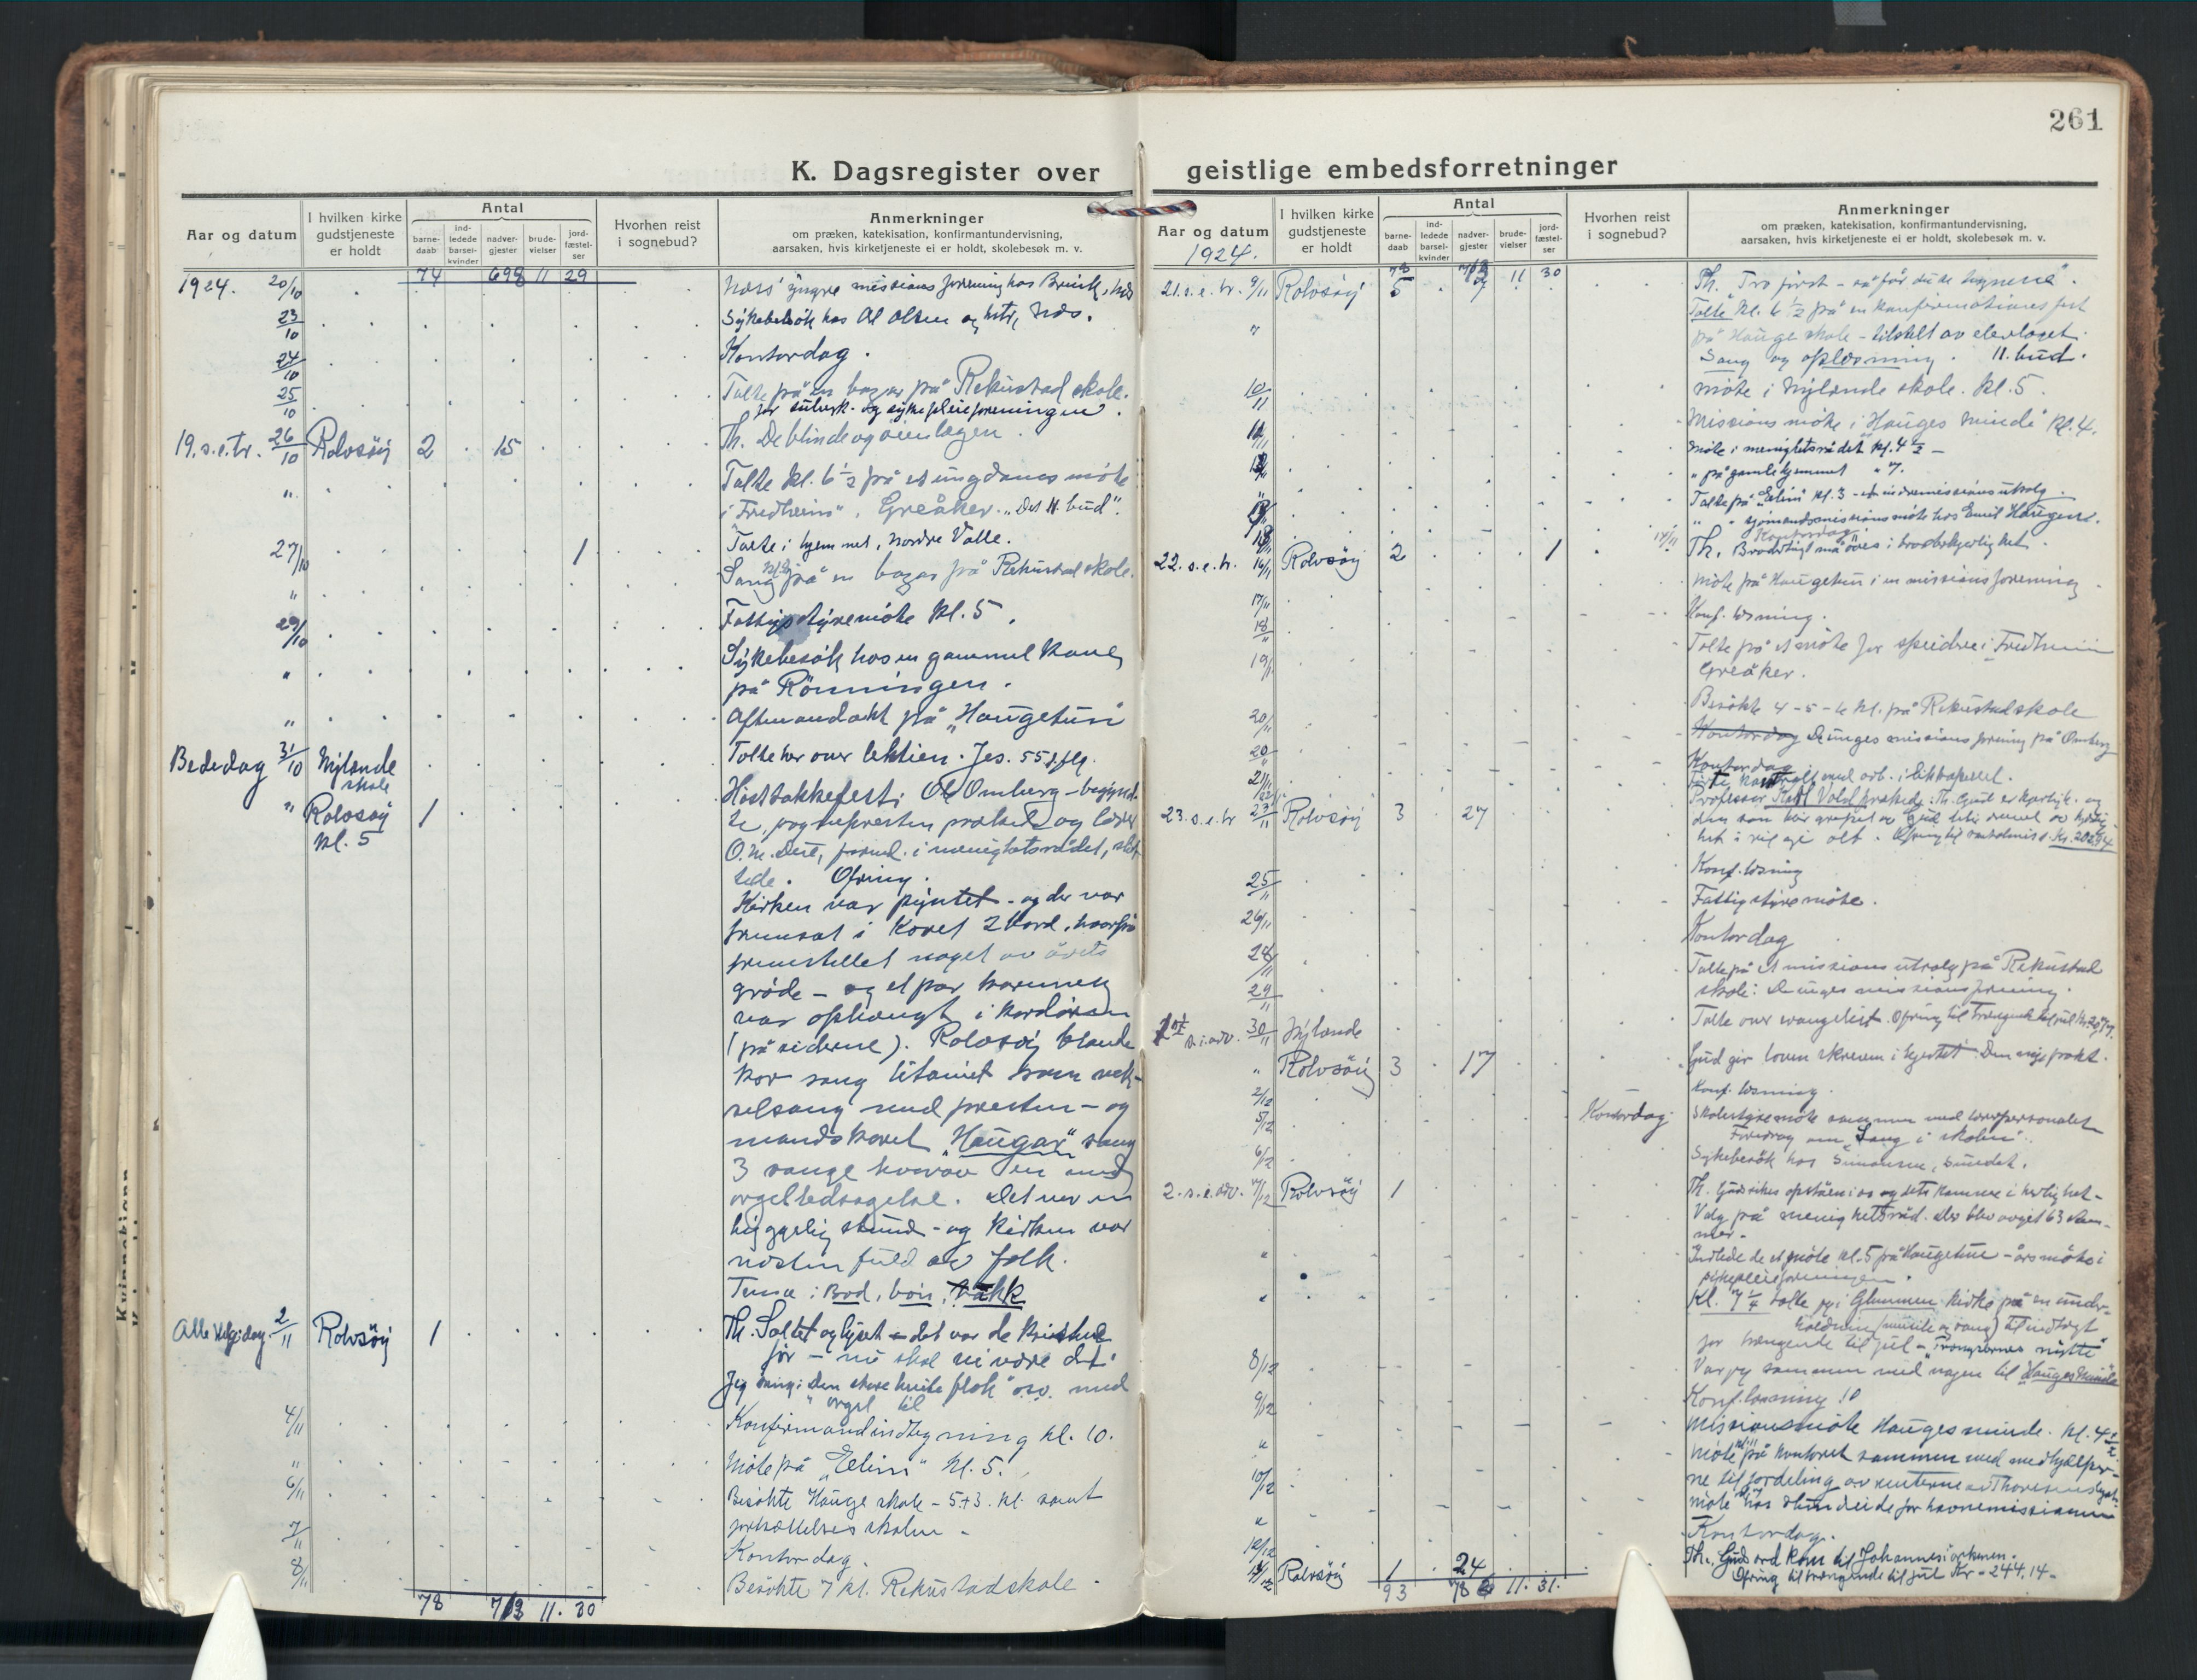 261
K. Dagsregister over geistlige embedsforretninger
Aar og datum
I hvilken kirke gudstjeneste er holdt
Antal
barne-daab
ind-ledede barsel-kvinder
nadver-gjester
brude-vielser
jord-fæstel-ser
Hvorhen reist i sognebud?
Anmerkninger
om præken, katekisation, konfirmantundervisning,
aarsaken, hvis kirketjeneste ei er holdt, skolebesøk m. v.
74 698 11 29
1924. 20/10 Næss' yngre missionsforening hos Brevik, Næs
23/10 Sykebesök hos Ol Olsen og hstr, Næs.
24/10 Kontordag.
25/10 Talte på en bazar på Rekustad skole.
for tuberk. og sykepleieforeningen.
19. s.e.tr. 26/10 Rolvsöy 2 15 Th. De blinde og öienlægen.
" Talte kl. 6 1/2 på et ungdomsmöte
i "Fredheim", Greåker. "Det 11. bud".
27/10 1 Talte i hjemmet, Nordre Valle.
" Sang på en bazar på Rekustad skole.
29/10 Fattigstyremöte kl. 5.
" Sykebesök hos en gammel kone
på Rönningen.
" Aftenandakt på "Haugetun"
Bededag 31/10 Nylande skole Talte her over lektien. Jes. 55
" Rolvsöy kl. 5 1 Hösttakkefest: Ole Omberg - begynd-
te, sognepresten prækte og lærer
O. M. , formd. i menighetsrådet, slut-
tede. Ofring.
Kirken var pyntet - og der var
fremsat i koret 2 bord, hvorpå
fremstillet noget av årets
gröde - og et par kornneg
var ophængt i kordören
(på siderne). Rolvsöy blande
kor sang litaniet som vek-
selsang med presten - og
mandskoret "Haugar" sang
3 sange hvorav en med
orgelledsagelse. Det var en
hyggelig stund - og kirken var
næsten fuld av folk.
Tema: Bod, bön, takk
Alle Helg. dag. 2/11 Rolvsöy 1 Th. Saltet og lyset - det var de kristne
för - nu skal vi være det.
Jeg sang: Den store hvite flok osv. med
orgel til
4/11 Konfirmandindtegning kl. 10.
" Möte på "Elim" kl. 5.
6/11 Besökte Hauge skole - 5+3. kl. samt
fortsættelsesskolen -
7/11 Kontordag.
8/11 Besökte 7 kl. Rekustadskole.
78 713 11. 30
Aar og datum
1924.
I hvilken kirke gudstjeneste er holdt
Antal
barne-daab
ind-ledede barsel-kvinder
nadver-gjester
brude-vielser
jord-fæstel-ser
Hvorhen reist i sognebud?
Anmerkninger
om præken, katekisation, konfirmantundervisning,
aarsaken, hvis kirketjeneste ei er holdt, skolebesøk m. v.
78 713 11 30
21. s.e. tr. 9/11 Rolvsöy 5 7 Th. "Tro först - så får du de tegnene".
" Talte kl. 6 1/2 på en konfirmationsfest
på Hauge skole - tilstelt av elevlaget.
Sang og oplæsning. 11. bud.
10/11 Möte i Nylande skole. Kl. 5.
Missionsmöte i "Hauges Minde" kl. 4.
Möte i menighetsrådet kl. 4 1/2 -
" på gamlehjemmet " 7.
Talte på "Elim" kl. 3 - et indremissionsutvalg.
" " sjömandsmissionsmöte hos Emil Haugen.
14/11 Kontordag
22. s.e. tr. 16/11 Rolvsöy 2 1 Th. må öves i broderkjerlighet.
17/11 Möte på Haugetun i en missionsforening
18/11 Konf. læsning.
19/11 Talte på et möte for speidere i Fredheim
Greåker.
20/11 Besökte 4 - 5 - 6 kl. på Rekustadskole
20/11 De unges missionsforening på Omberg
21/11 Kontordag
23. s.e. tr. 23/11 Rolvsöy 3 27 Professor Karl Vold prækede: Th. Gud er kjærlig. og
25/11 Konf. læsning
26/11 Fattigstyremöte.
28/11 Kontordag
29/11 Talte på et missionsutvalg på Rekustad
skole: De unges missionsforening.
1ste s. i adv. 30/11 Nylande Talte over evangeliet. Ofring til trængende til jul
" Rolvsöy 3 17 Gud gir loven skreven i hjertet. Den nye pakt.
2/12 Konf. læsning.
5/12 Kontordag Skolestyremöte sammen med lærerpersonalet
Foredrag om "Sang i skolen".
6/12 Sykebesök hos Simonsen, Sundet.
2. s. i. adv. 7/12 Rolvsöy 1 Th. Guds rikes opståen i os og dets komme i herlighet -
Valg på menighetsråd. Der blev avgit 63 stem-
mer -
" Indlede de et möte kl. 5 på Haugetun - årsmöte i
sykepleieforeningen.
" Kl. 7 1/4 talte jeg i Glemmen kirke på en under-
holdning (musik og sang) til indtægt
for trængende til jul -
8/12 Var jeg sammen med nogen til "Hauges Minde"
9/12 Konf. læsning 10
" Missionsmöte Hauges minde. kl. 4 1/2
10/12 Möte kl. 11 på kontoret sammen med medhjælper-
ne til fordeling av renterne av Thoresens legat.
" Möte hos for havnemissionen
12/12 Kontordag.
14/12 Rolvsöy 1 24 Th. Guds ord kom til Johannes i örkenen.
Ofring til trængende til jul Kr - 244,14 -
93 11. 31.